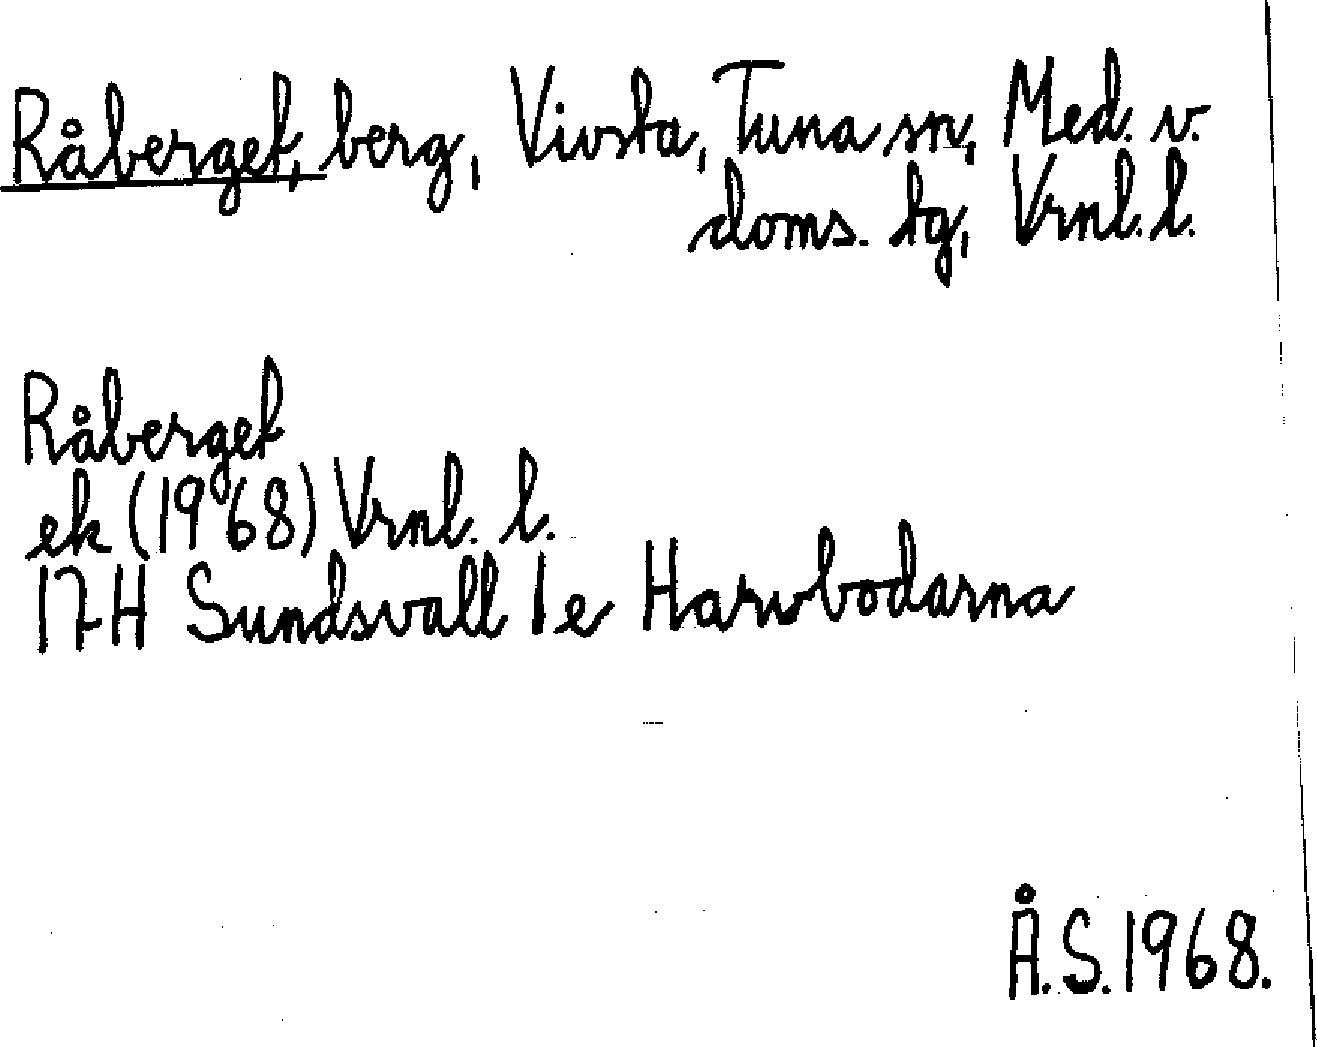 Råberget, berg, Vivsta, Tuna sn, Med. v.
doms. tg, Vrnl. l.
Råberget
ek (1968) Vrnl. l.
17H Sundsvall 1e Harvbodarna
Å.S. 1968.